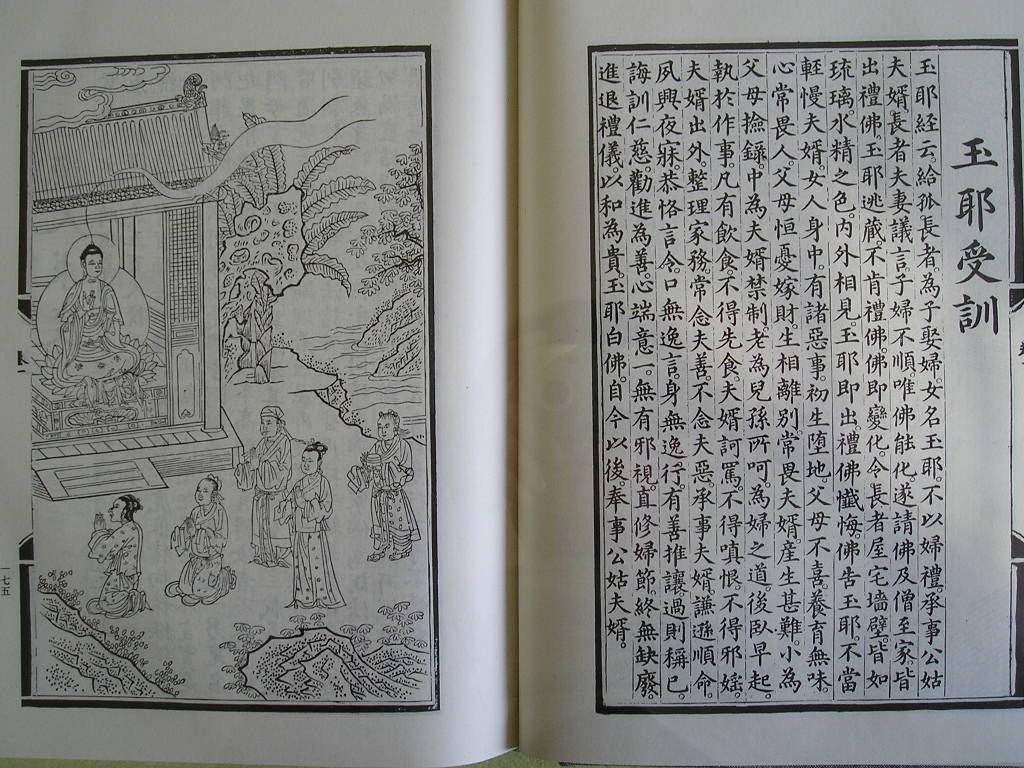 玉耶受訓
玉耶經云。給孤長者。為子娶婦。女名玉耶。不以婦禮。承事公姑
夫婿。長者夫妻議言。子婦不順。唯佛能化。遂請佛及僧至家。皆
出禮佛。玉耶逃藏。不肯禮佛。佛即變化。令長者屋宅墻壁。皆如
琉璃水精之色。內外相見。玉耶即出。禮佛懺悔。佛告玉耶。不當
輕慢夫婿。女人身中。有諸惡事。初生墮地。父母不喜。養育無味。
心常畏人。父母恒憂嫁財。生相離別。常畏夫婿。產生甚難。小為
父母撿錄。中為夫婿禁制。老為兒孫所呵。為婦之道。後臥早起。
執於作事。凡有飲食。不得先食。夫婿訶罵。不得嗔恨。不得邪婬。
夫婿出外。整理家務。常念夫善。不念夫惡。承事夫婿。謙遜順命。
夙興夜寐。恭恪言令。口無逸言。身無逸行。有善推讓。過則稱己。
誨訓仁慈。勸進為善。心端意一。無有邪視。直修婦節。終無缺廢。
進退禮儀。以和為貴。玉耶白佛。自今以後。奉事公姑夫婿。
一七五